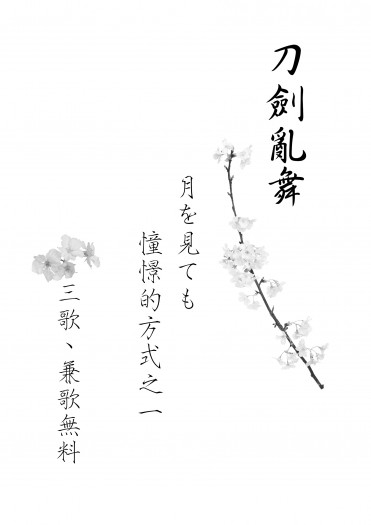 刀劍亂舞
月を見ても
憧憬的方式之一
三歌、兼歌無料